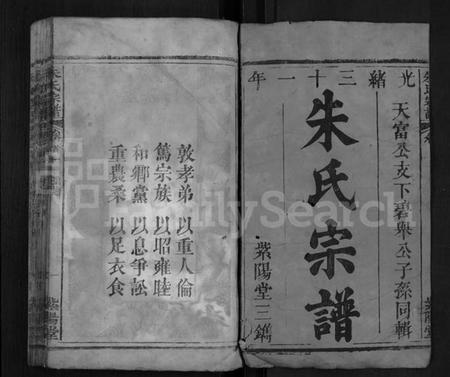 光緒三十一年
天富公支下碧與公子孫同輯
朱氏宗譜
紫陽堂三鐫
朱氏宗譜
紫陽堂
敦孝弟以重人倫
篤宗族以昭雍睦
和鄉黨以息爭訟
重農桑以足衣食
朱氏宗譜
紫陽堂
FamilySearch